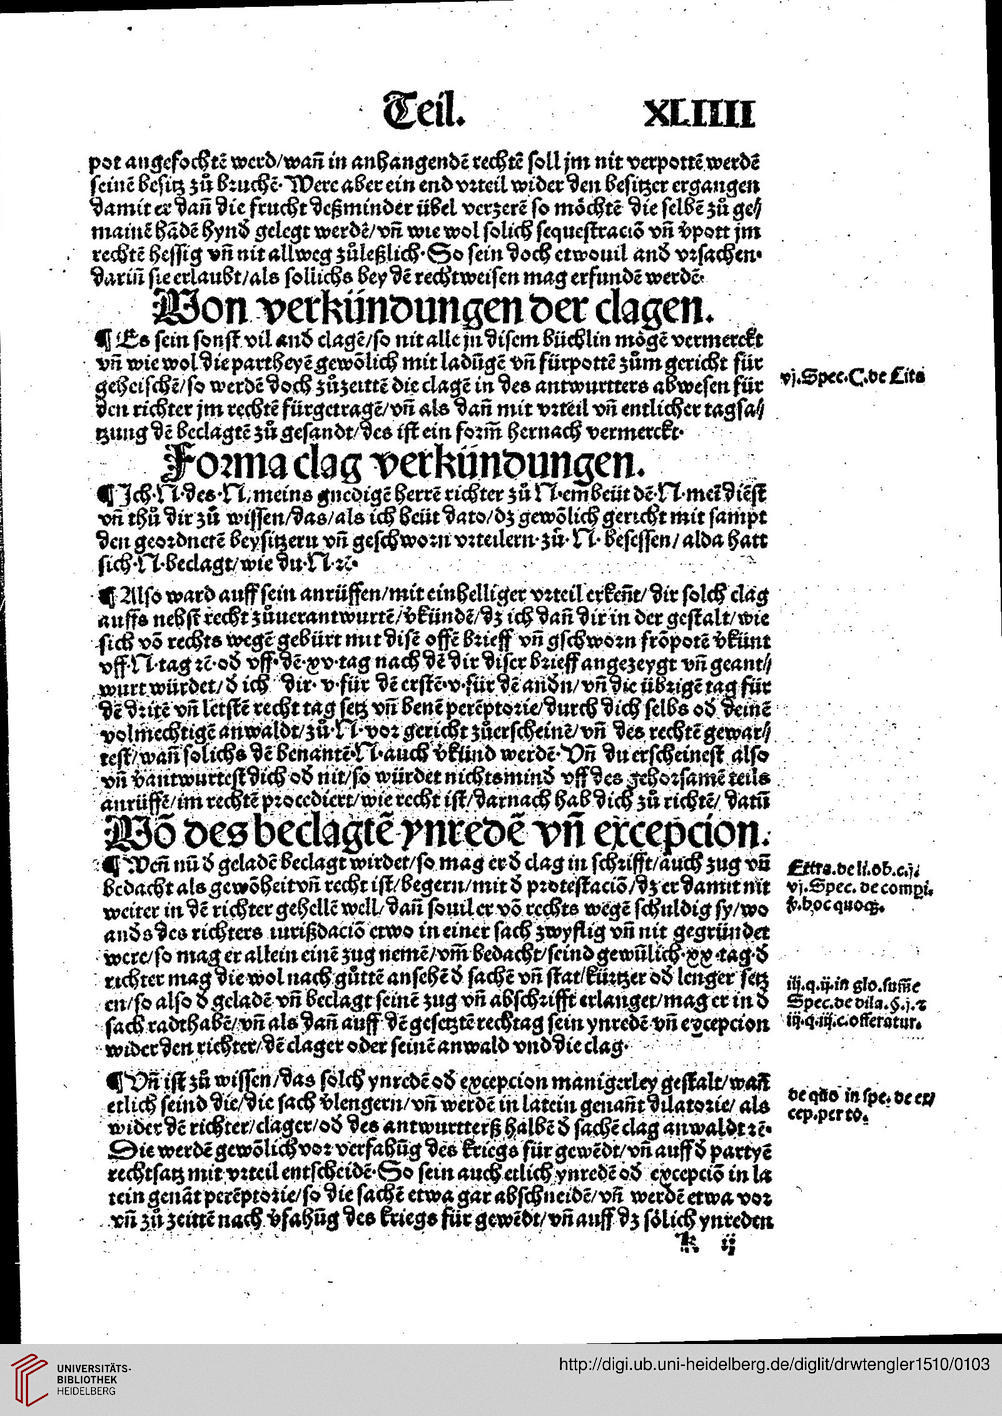 Teil. XLIIII
pot angefochtē werd/wañ in anhangendē rechtē soll jm nit verpottē werdē
seinē besitz zů bruchē. Were aber ein end vrteil wider den besitzer ergangen
damit er dañ die frucht deßminder übel verzerē so möchtē die selbē zů ge/
mainē hādē hynd gelegt werdē/vñ wie wol solich sequestraciō vñ v̄pott jm
rechtē hessig vñ nit allweg zůleßlich. So sein doch etwouil and vrsachen.
dariñ sie erlaubt/als sollichs bey dē rechtweisen mag erfundē werdē.
Von verkündungen der clagen.
¶ Es sein sonst vil and clagē/so nit alle jn disem büchlin mögē vermerckt
vñ wie wol die partheyē gewōlich mit ladūgē vñ fürpottē zům gericht für
geheischē/so werdē doch zůzeittē die clagē in des antwurtters abwesen für
den richter jm rechtē fürgetragē/vñ als dañ mit vrteil vñ entlicher tagsa/
tzung dē beclagtē zů gesandt/des ist ein form̄ hernach vermerckt.
vj.Spec.C.de Lita
Forma clag verkündungen.
¶ Ich.N.des.N.meins gnedigē herrē richter zů N.embeüt dē.N.mei diēst
vñ thů dir zů wissen/das/als ich beüt dato/dz gewōlich gericht mit sampt
den geordnetē beysitzern vñ geschworn vrteilern.zů.N.besessen/alda hatt
sich.N.beclagt/wie du.N.ꝛc.
¶ Also ward auff sein anrüffen/mit einhelliger vrteil erkeñt/dir solch clag
auffs nehst recht zůuerantwurtē/v̄kündē/dz ich dañ dir in der gestalt/wie
sich vō rechts wegē gebürt mit disē offē brieff vñ gschworn frōpotē v̄künt
vff.N.tag ꝛc.od vff.dē.xv.tag nach dē dir diser brieff angezeygt vñ geant//
wurt würdet/d ich dir.v.für dē erstē.v.für dē andn/vñ die übrigē tag für
dē dritē vñ letstē recht tag setz vñ benē perēptorie/durch dich selbs od deinē
volmechtigē anwaldt/zů.N.vor gericht zůerscheinē/vñ des rechtē gewar//
test/wañ solichs dē benantē.N.auch v̄künd werdē.Vñ du erscheinest also
vñ v̄antwurtest dich od nit/so würdet nichtsmind vff des gehorsamē teils
anrüffē/im rechtē procediert/wie recht ist/darnach hab dich zů richtē/datū
Vō des beclagtē ynredē vñ excepcion.
¶ Weñ nū d geladē beclagt wirdet/so mag er d clag in schrifft/auch zug vñ
bedacht als gewōheit vñ recht ist/begern/mit d protestaciō/dz er damit nit
weiter in dē richter gehellē well/dañ souil er vō rechts wegē schuldig sy/wo
ands des richters iurißdaciō etwo in einer sach zwyflig vñ nit gegründet
were/so mag er allein einē zug nemē/vm̄ bedacht/seind gewūlich.xx.tag.d
richter mag die wol nach gůttē ansehē d sachē vñ stat/kürtzer od lenger setz
en/so also d geladē vñ beclagt seinē zug vñ abschrifft erlanget/mag er in d
sach radthabē/vñ als dañ auff dē gesetztē rechtag sein ynredē vñ excepcion
wider den richter/dē clager oder seinē anwald vnd die clag.
Extra.de li.ob.c.j.
vj.Spec.de compi.
§.hoc quoqꝫ.
iij.q.ij.in glo.sum̄e
Spec.de dila.§.j.ꝛ
iij.q.iij.c.offeratur.
¶ Vñ ist zů wissen/das solch ynredē od excepcion manigerley gestalt/wañ
etlich seind die/die sach v̄lengern/vñ werdē in latein genañt dilatorie/als
wider dē richter/clager/od des antwurtterß halbē d sachē clag anwaldt ꝛc.
Die werdē gewōlich vor verfahūg des kriegs für gewēdt/vñ auff d partyē
rechtsatz mit vrteil entscheidē.So sein auch etlich ynredē od excepciō in la
tein genāt perēptorie/so die sachē etwa gar abschneidē/vñ werdē etwa vor
vñ zů zeittē nach v̄fahūg des kriegs für gewēdt/vñ auff dz sölich ynreden
de qbs in spe.de ex/
cep.per to.
k ij
UNIVERSITÄTS-
BIBLIOTHEK
HEIDELBERG
http://digi.ub.uni-heidelberg.de/diglit/drwtengler1510/0103